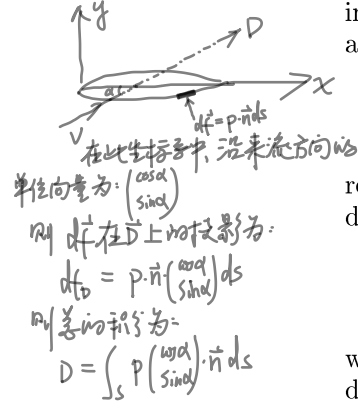 y
D
in
a
α
x
V
df⃗ = p·n⃗ds
在此坐标系中,沿来流方向的
单位向量为: (cosα sinα)
re
则 df⃗ 在D⃗上的投影为:
d
df_D = p·n⃗·(cosα sinα)ds
则总的积分为:
D = ∫_S p(cosα sinα)·n⃗ ds
w
d